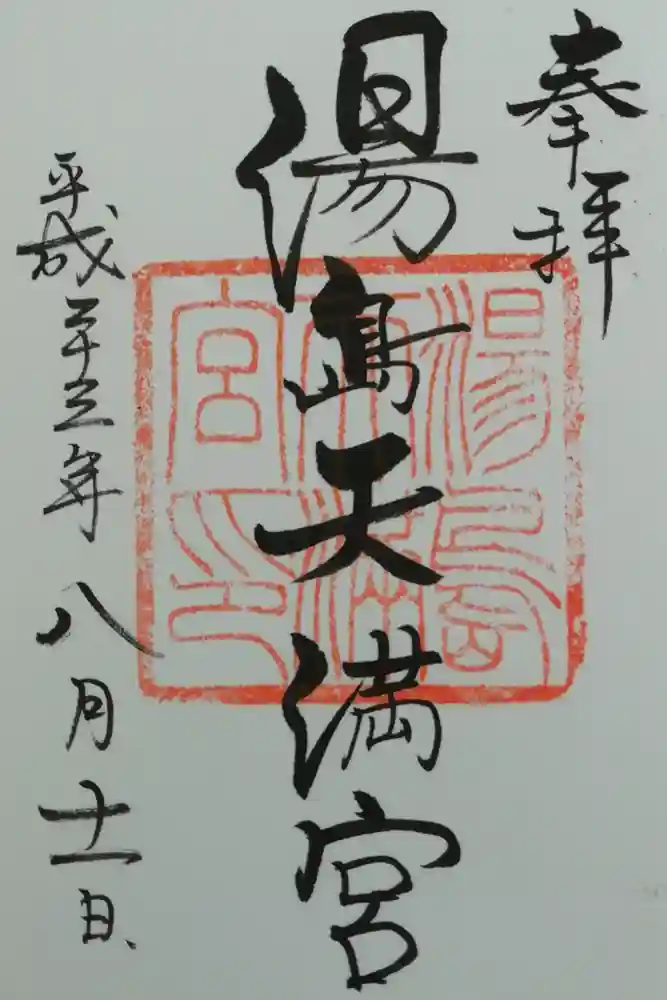 奉拝
湯島天満宮
湯島天満宮之印
平成二十三年八月十一日